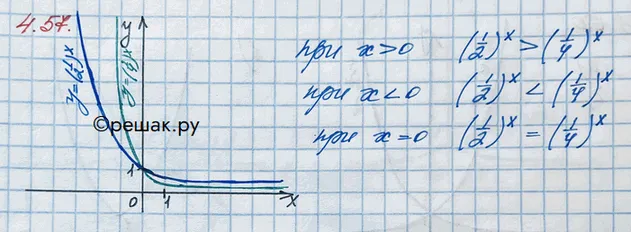 4.57.
y
y=(1/2)^x
y=(1/4)^x
©решак.ру
1
0 1 x
при x>0 (1/2)^x > (1/4)^x
при x<0 (1/2)^x < (1/4)^x
при x=0 (1/2)^x = (1/4)^x